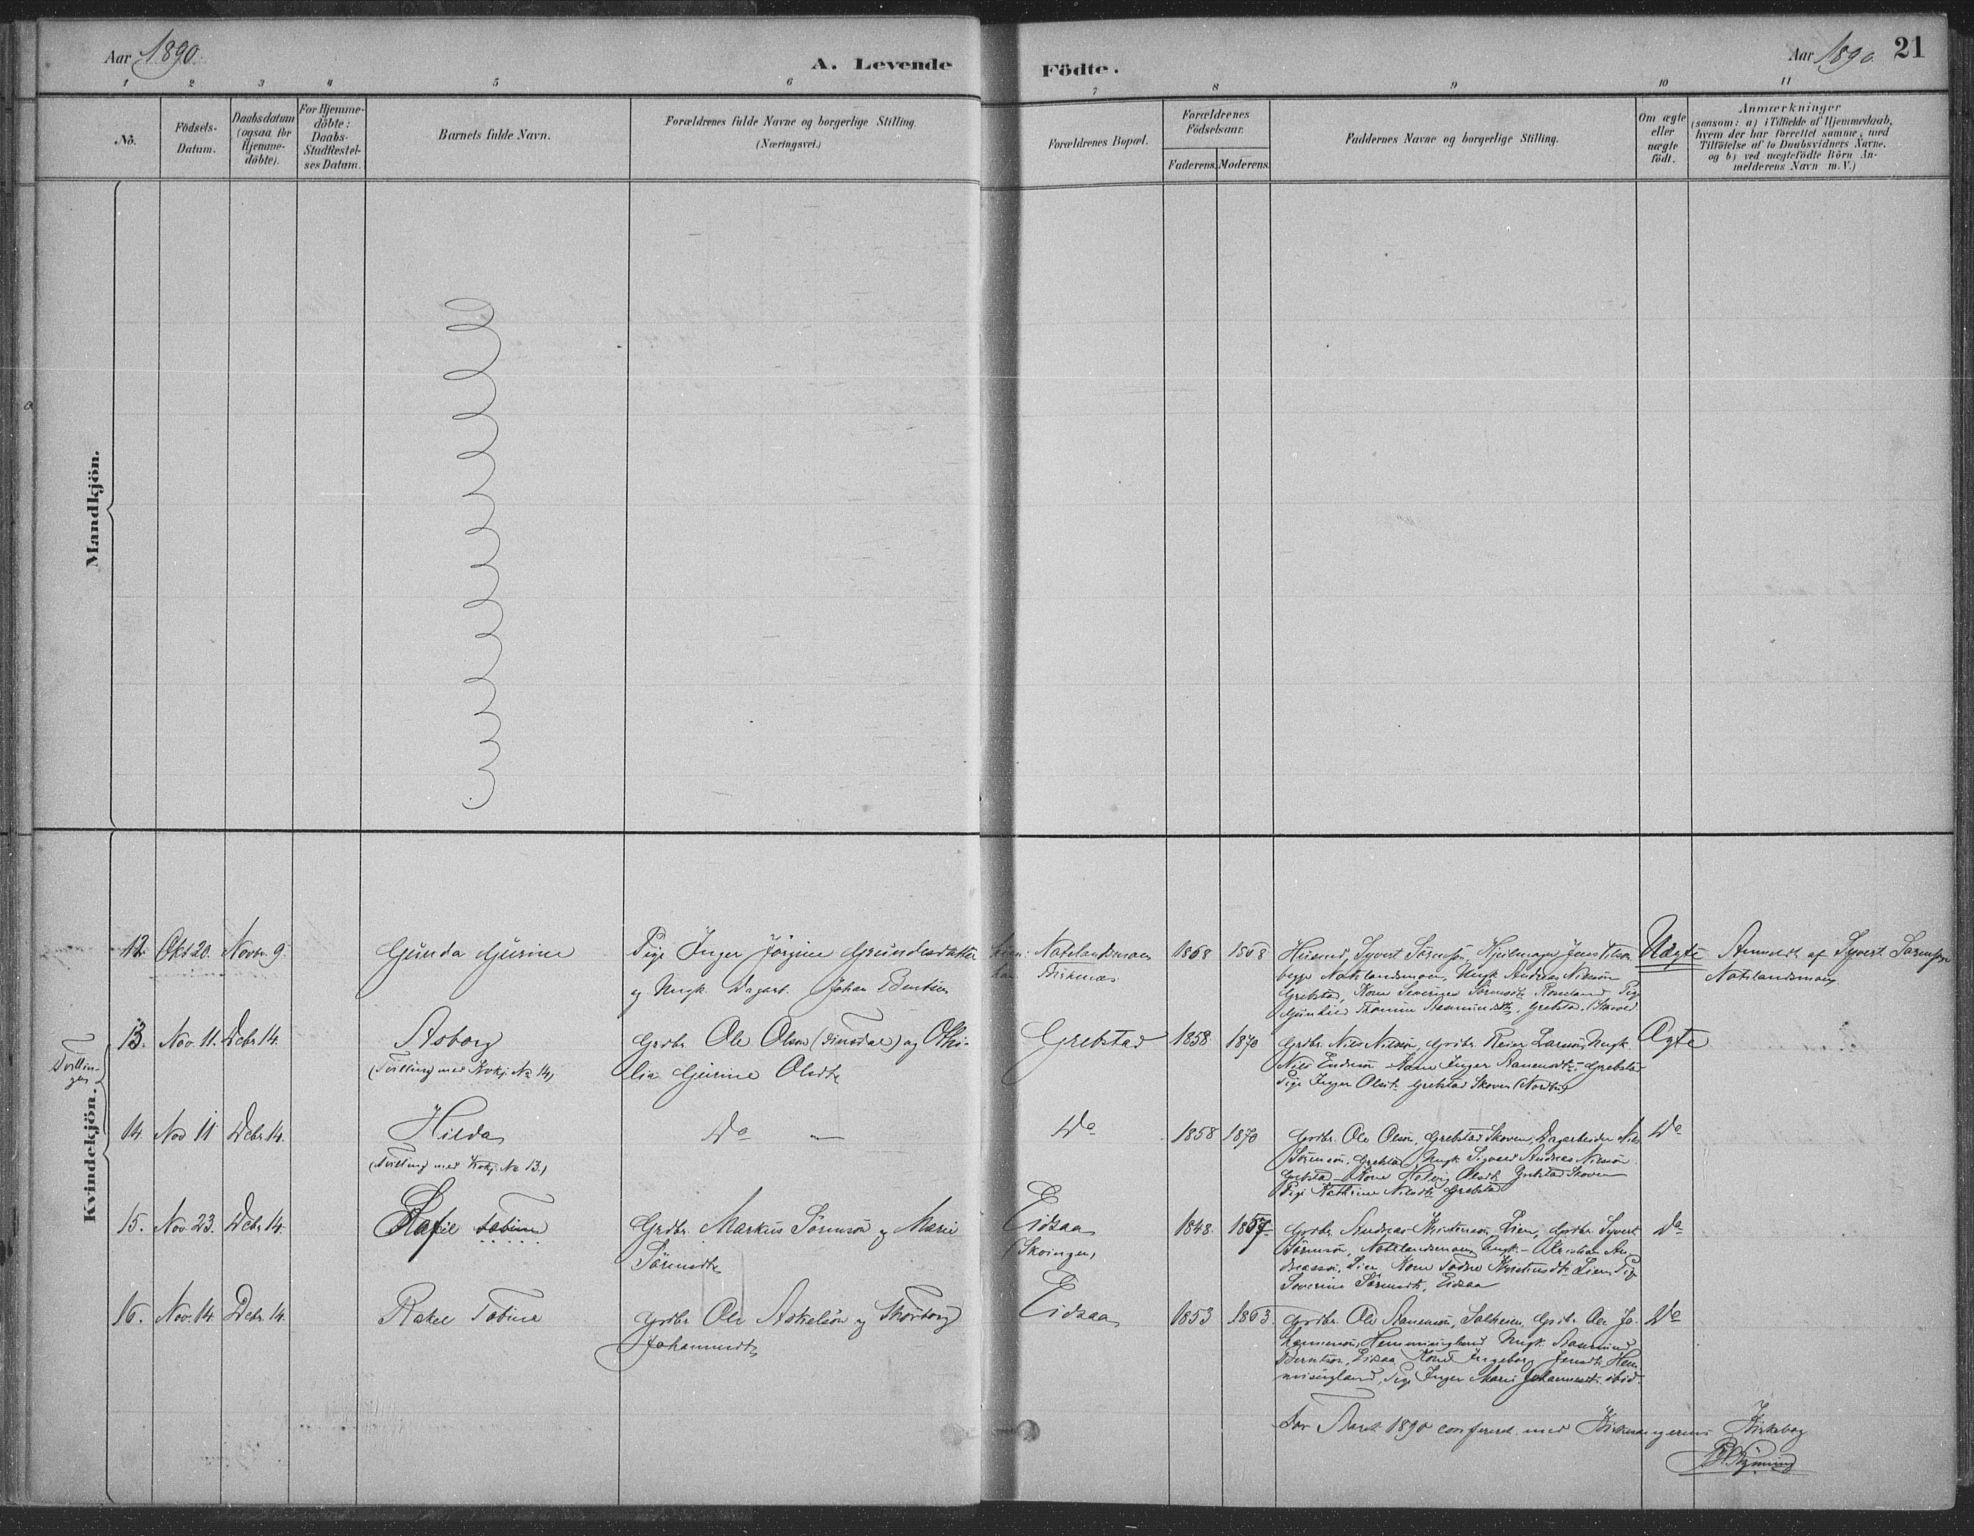 Aar 1890.
A. Levende Födte.
Aar 1890. 21
1 2 3 4 5 6 7 8 9 10 11
No.
Födsels-
Datum.
Daabsdatum
(ogsaa for
Hjemme-
döbte).
For Hjemme-
döbte:
Daabs-
Stadfæstel-
ses Datum.
Barnets fulde Navn.
Forældrenes fulde Navne og borgerlige Stilling.
(Næringsvei.)
Forældrenes Bopæl.
Forældrenes
Födselsaar.
Faderens. Moderens.
Faddernes Navne og borgerlige Stilling.
Om ægte
eller
uægte
födt.
Anmærkninger
(saasom: a) i Tilfælde af Hjemmedaab,
hvem der har forrettet samme, med
Tilföielse af to Daabsvidners Navne.
og b) ved uægtefödte Börn An-
melderens Navn m. V.)
Mandkjön.
Kvindekjön.
Tvillin-
ger
12. Okt 20. Novbr. 9.
Gunda Gurine
Pige Inger Jörgine Gundersdatter
og Ungk. Dagarb. Johan Berntsen
Natlandsmoen
Birknæs
1868 1868
Husmd. Syvert Sörensen, Hjulmager Jens Olsen
begge Natlandsmoen, Ungk. Andreas Nilssön
Grebstad, Kone Severine Sörensdtr. Roseland, Pige
Gunhild Thomine Aasmundsdtr. Grebstad
Uægte
Anmeldt af Syvert Sörensen
Natlandsmoen
13. Nov. 11. Dcbr. 14.
Asborg
(Tvilling med Kvkj. No 14)
Grdbr. Ole Olsen og Othi-
lia Gurine Olsdtr.
Grebstad
1858 1870
Grdbr. Nils Nilssön, Grdbr. Reier Larssön, Ungk.
Nils Endresen, Kone Inger Aanensdtr. Grebstad
Pige Inger Olsdt. Grebstad Skoven
Ægte
14. Nov 11 Dcbr. 14.
Hilda
(Tvilling med Kvkj. No 13.)
Do —
Do
1858 1870
Grdbr. Ole Olsön, Grebstad Skoven, Dagarbeider Nils
Sörensön, Grebstad, Ungk. Sigvard Andreas Nilssön
Grebstad, Kone Helvig Olsdtr. Grebstad Skoven
Pige Kathrine Nilsdtr. Grebstad
Do
15. Nov. 23. Dcbr. 14.
Rafil Tobine
Grdbr. Markus Sörensön og Marie
Sörensdtr.
Eidsaa
(Skoingen)
1848. 1857
Grdbr. Andreas Kristensön, Lien, Grdbr. Syvert
Sörensön, Natlandsmoen, Ungk. Kristian An-
dreassön, Lien, Kone Todne Kristensdtr. Lien, Pige
Severine Sörensdt. Eidsaa
Do
16. Nov. 14. Dcbr. 14.
Rakel Tobine
Grdbr. Ole Askelsön og Thorborg
Johannesdtr.
Eidsaa
1853 1863
Grdbr. Ole Aanensön, Solheim, Grdbr. Ole Jo-
hannessön, Hemmingland, Ungk. Aasmund
Berntsen, Eidsaa, Kone Ingeborg Jensdt. Hem-
mingland, Pige Inger Marie Johannesdt. ibid.
Do
For Aaret 1890 confereret med Kirkesangerens Kirkebog